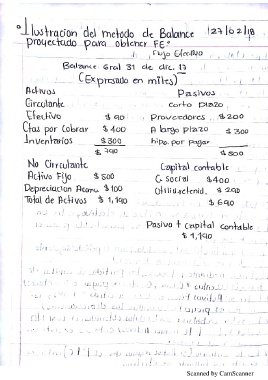 Ilustracion del metodo de Balance 27/02/18
proyectado para obtener FE:
Flujo Efectivo
Balance Gral 31 de dic. 17
(Expresado en miles)
Activos Pasivos
Circulante corto plazo
Efectivo $90 Proveedores $200
Ctas por Cobrar $400 A largo plazo $300
Inventarios $300 hipo. por pagar
$790 $500
No Circulante Capital contable
Activo Fijo $500 C. Social $400
Depreciacion Acamu $100 Utilidad enid. $290
Total de Activos $1,190 $690
Pasivo + capital contable
$1,190
Scanned by CamScanner